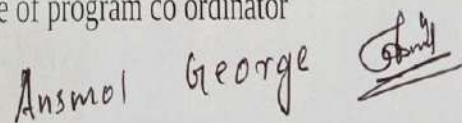 e of program co ordinator
Ansmol George